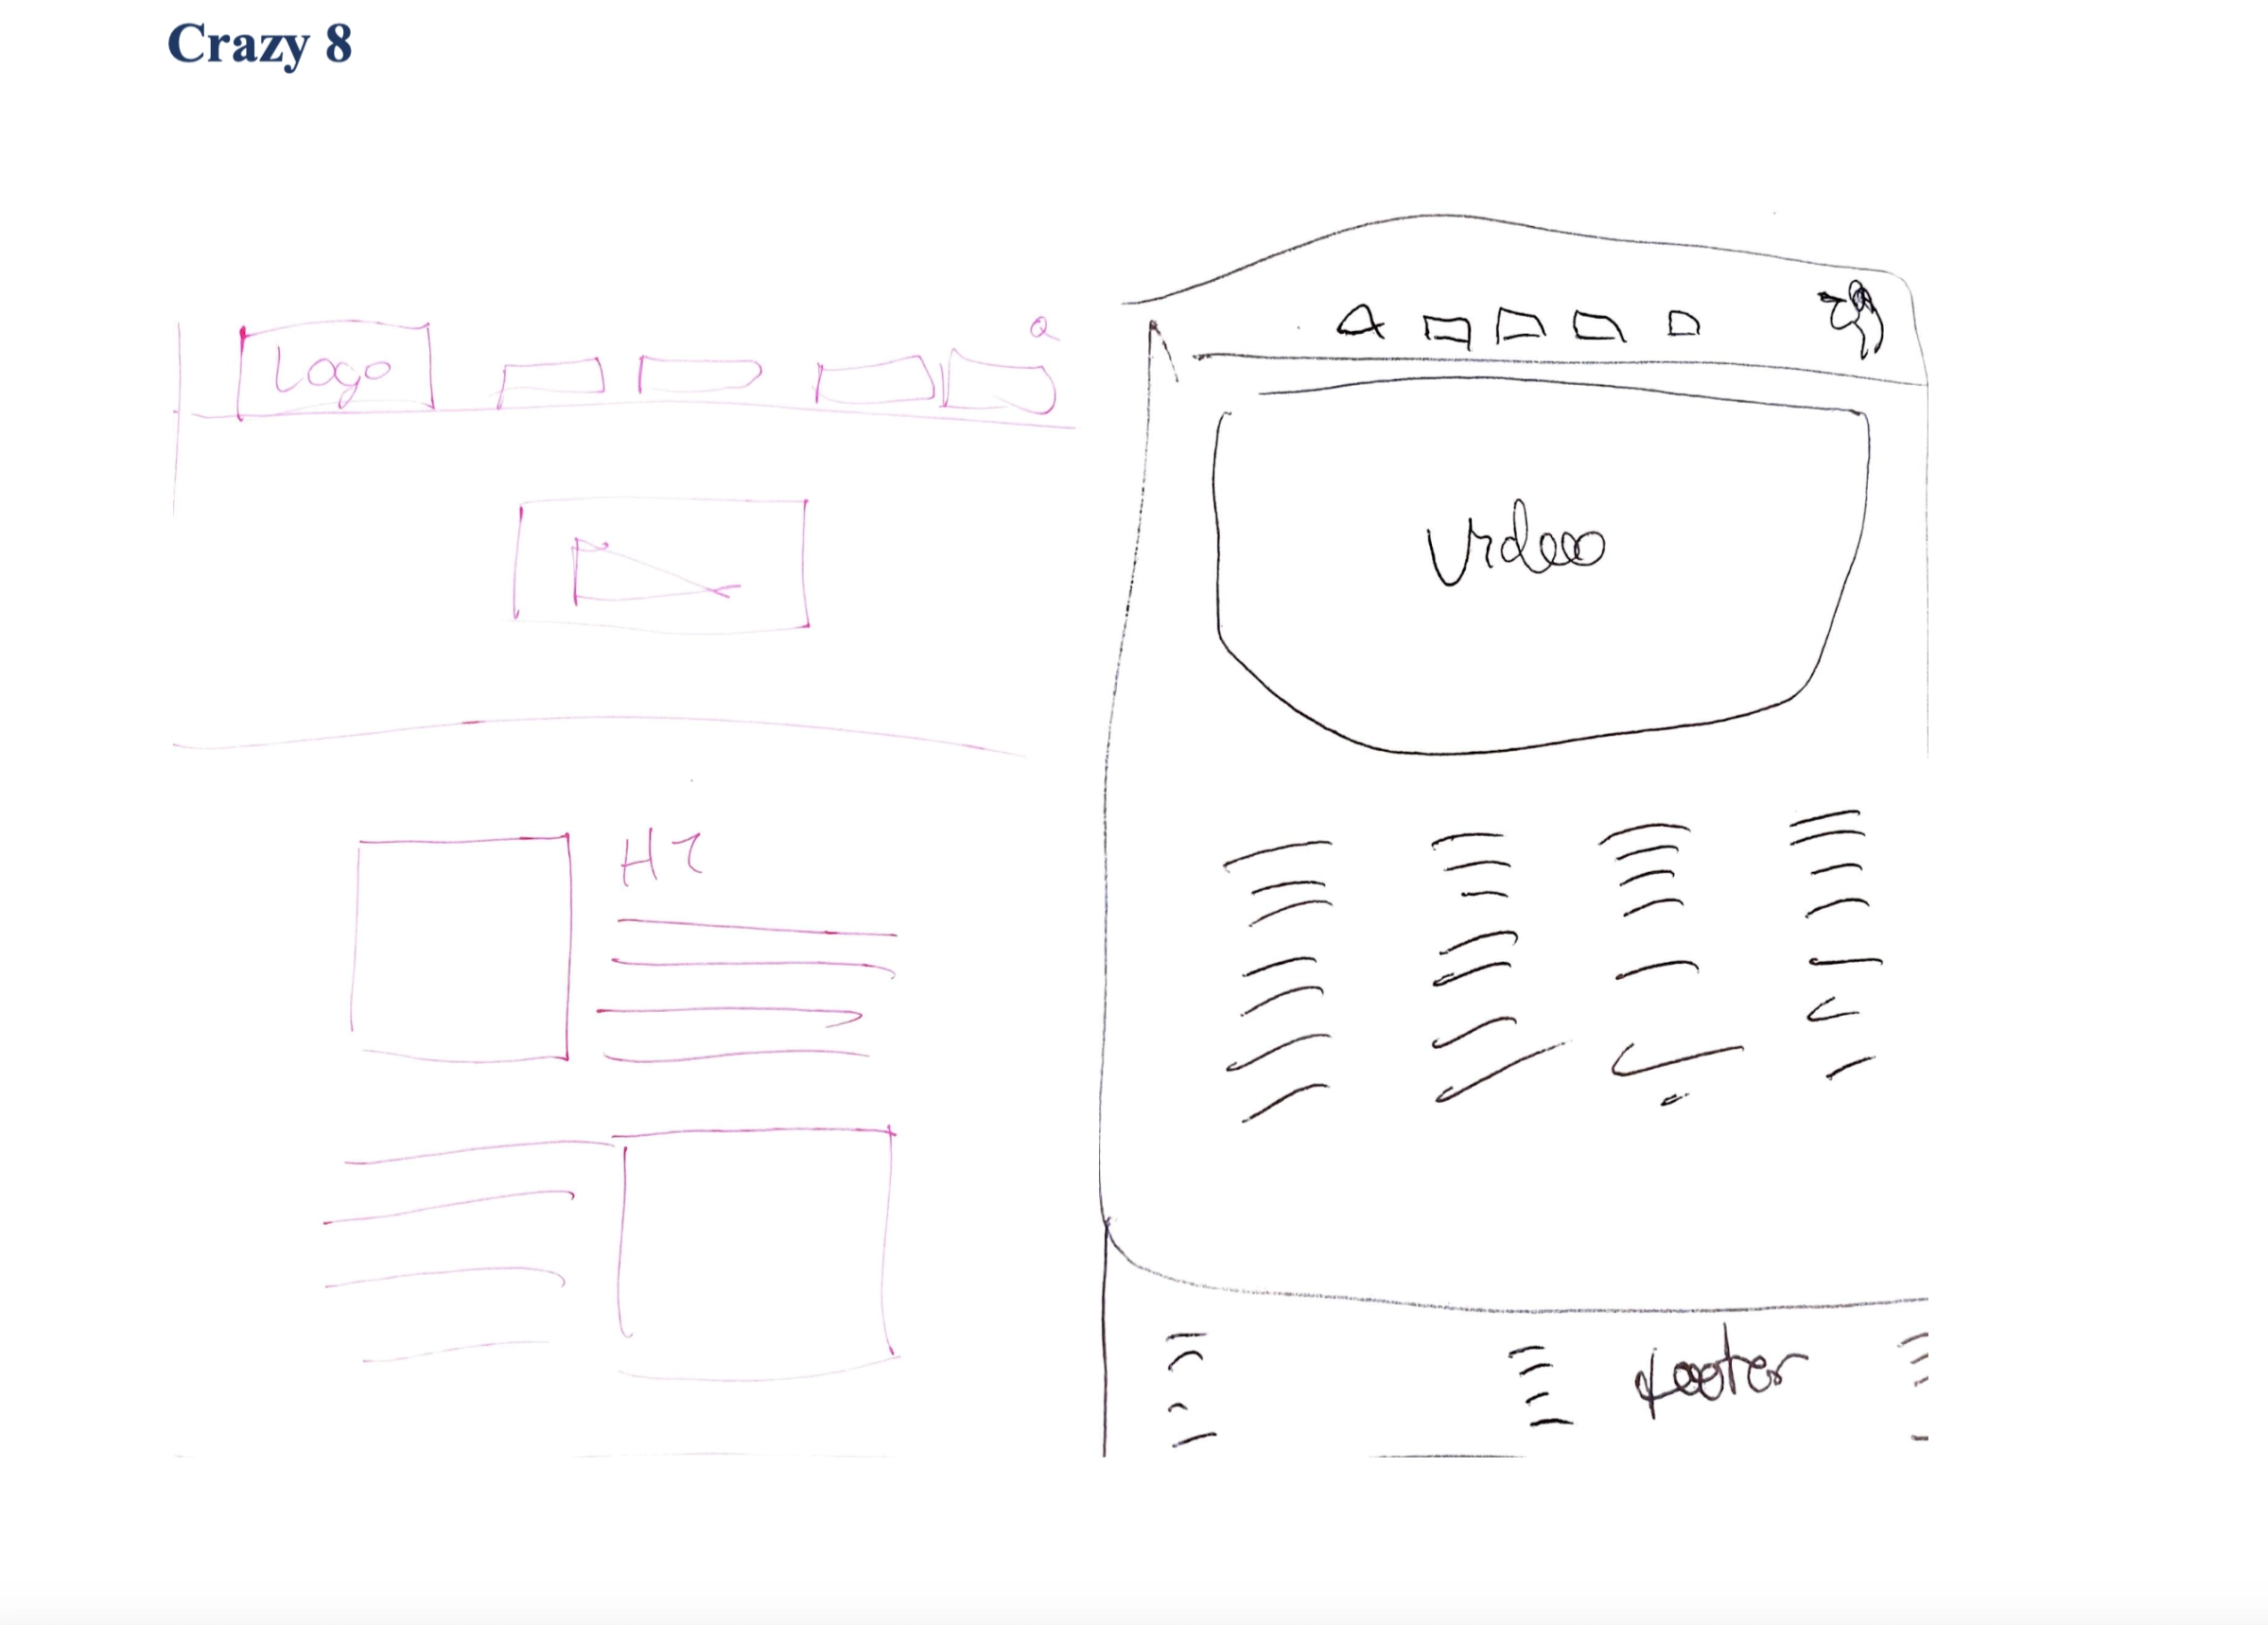 Crazy 8
Logo
Video
footer